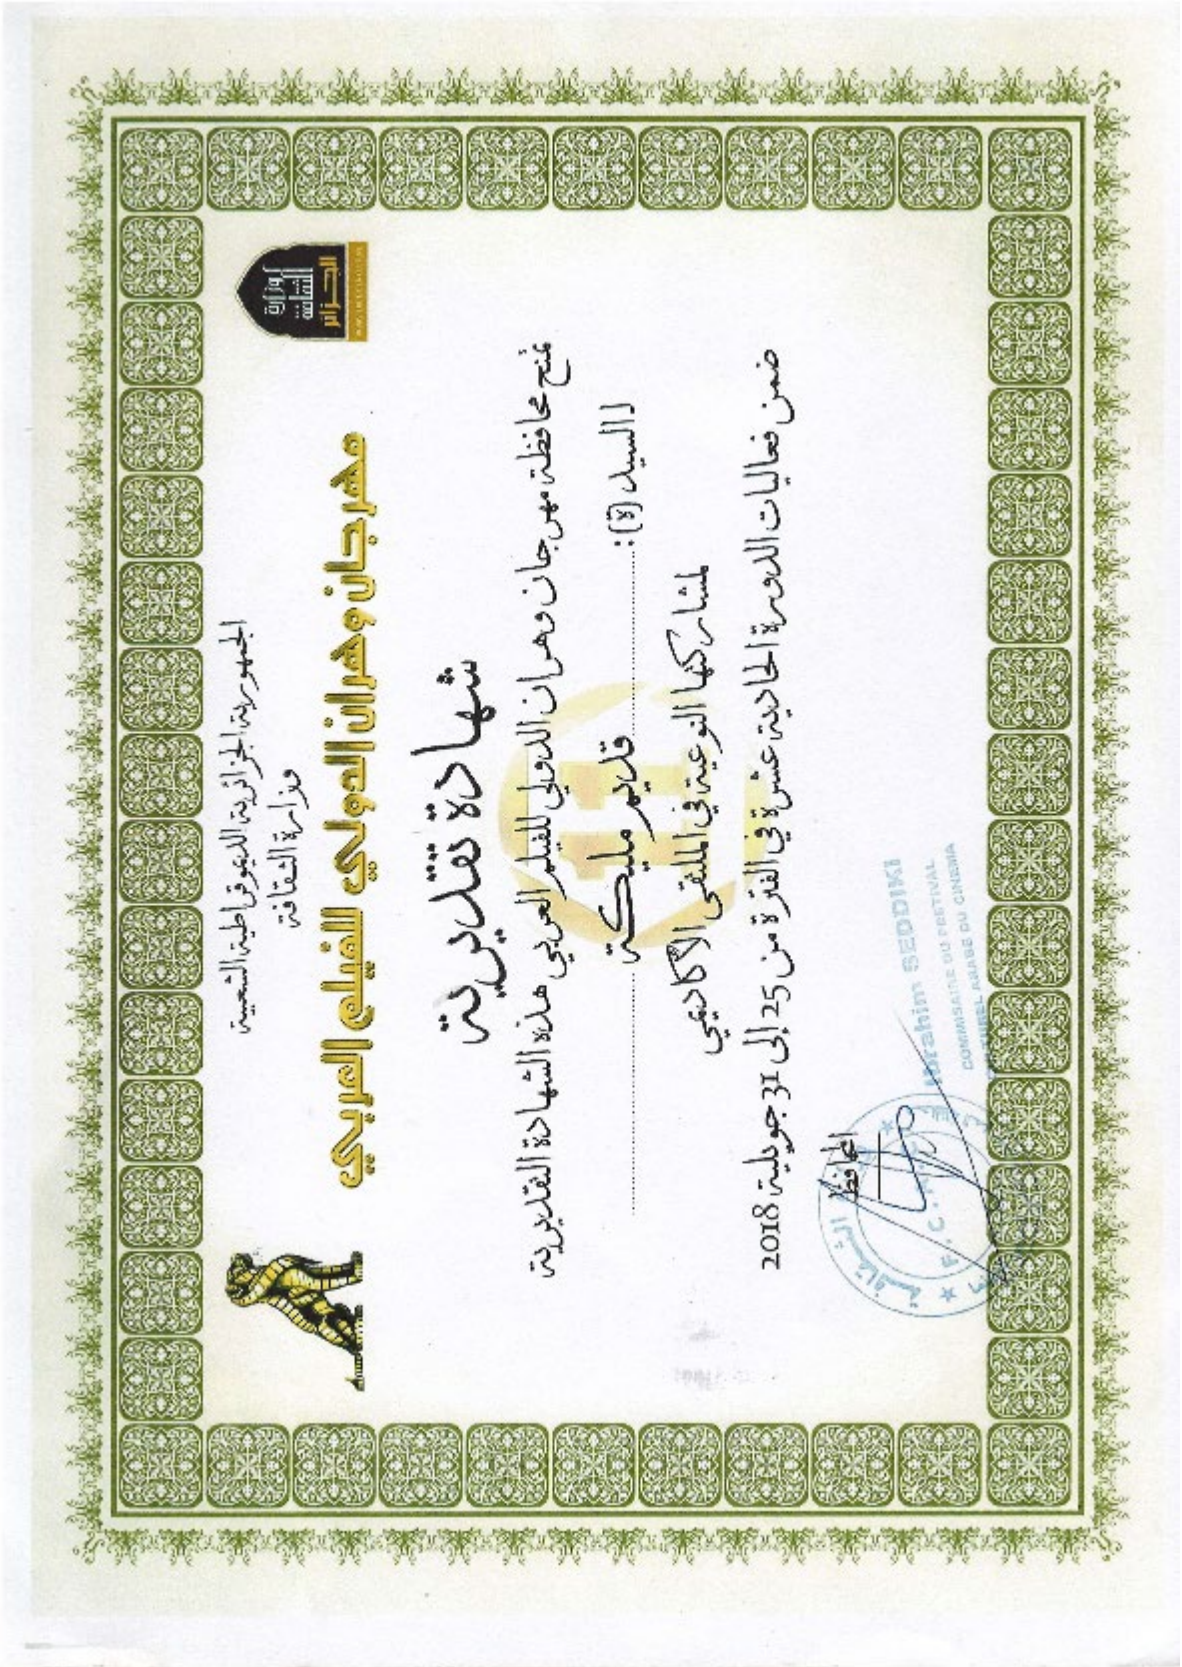 الجمهورية الجزائرية الديموقراطية الشعبية
وزارة الثقافة
وزارة
الثقافة
الجزائر
مهرجان وهران الدولي للفيلم العربي
شهادة تقديرية
تمنح محافظة مهرجان وهران الدولي للفيلم العربي هذه الشهادة التقديرية
لالسيد(ة): قديم مليكة
لمشاركتها النوعية في الملتقى الأكاديمي
ضمن فعاليات الدورة الحادية عشرة في الفترة من 25 إلى 31 جويلية 2018
المحافظ
Ibrahim SEDDIKI
COMMISSAIRE DU FESTIVAL
ARABE DU CINEMA
الثقافية